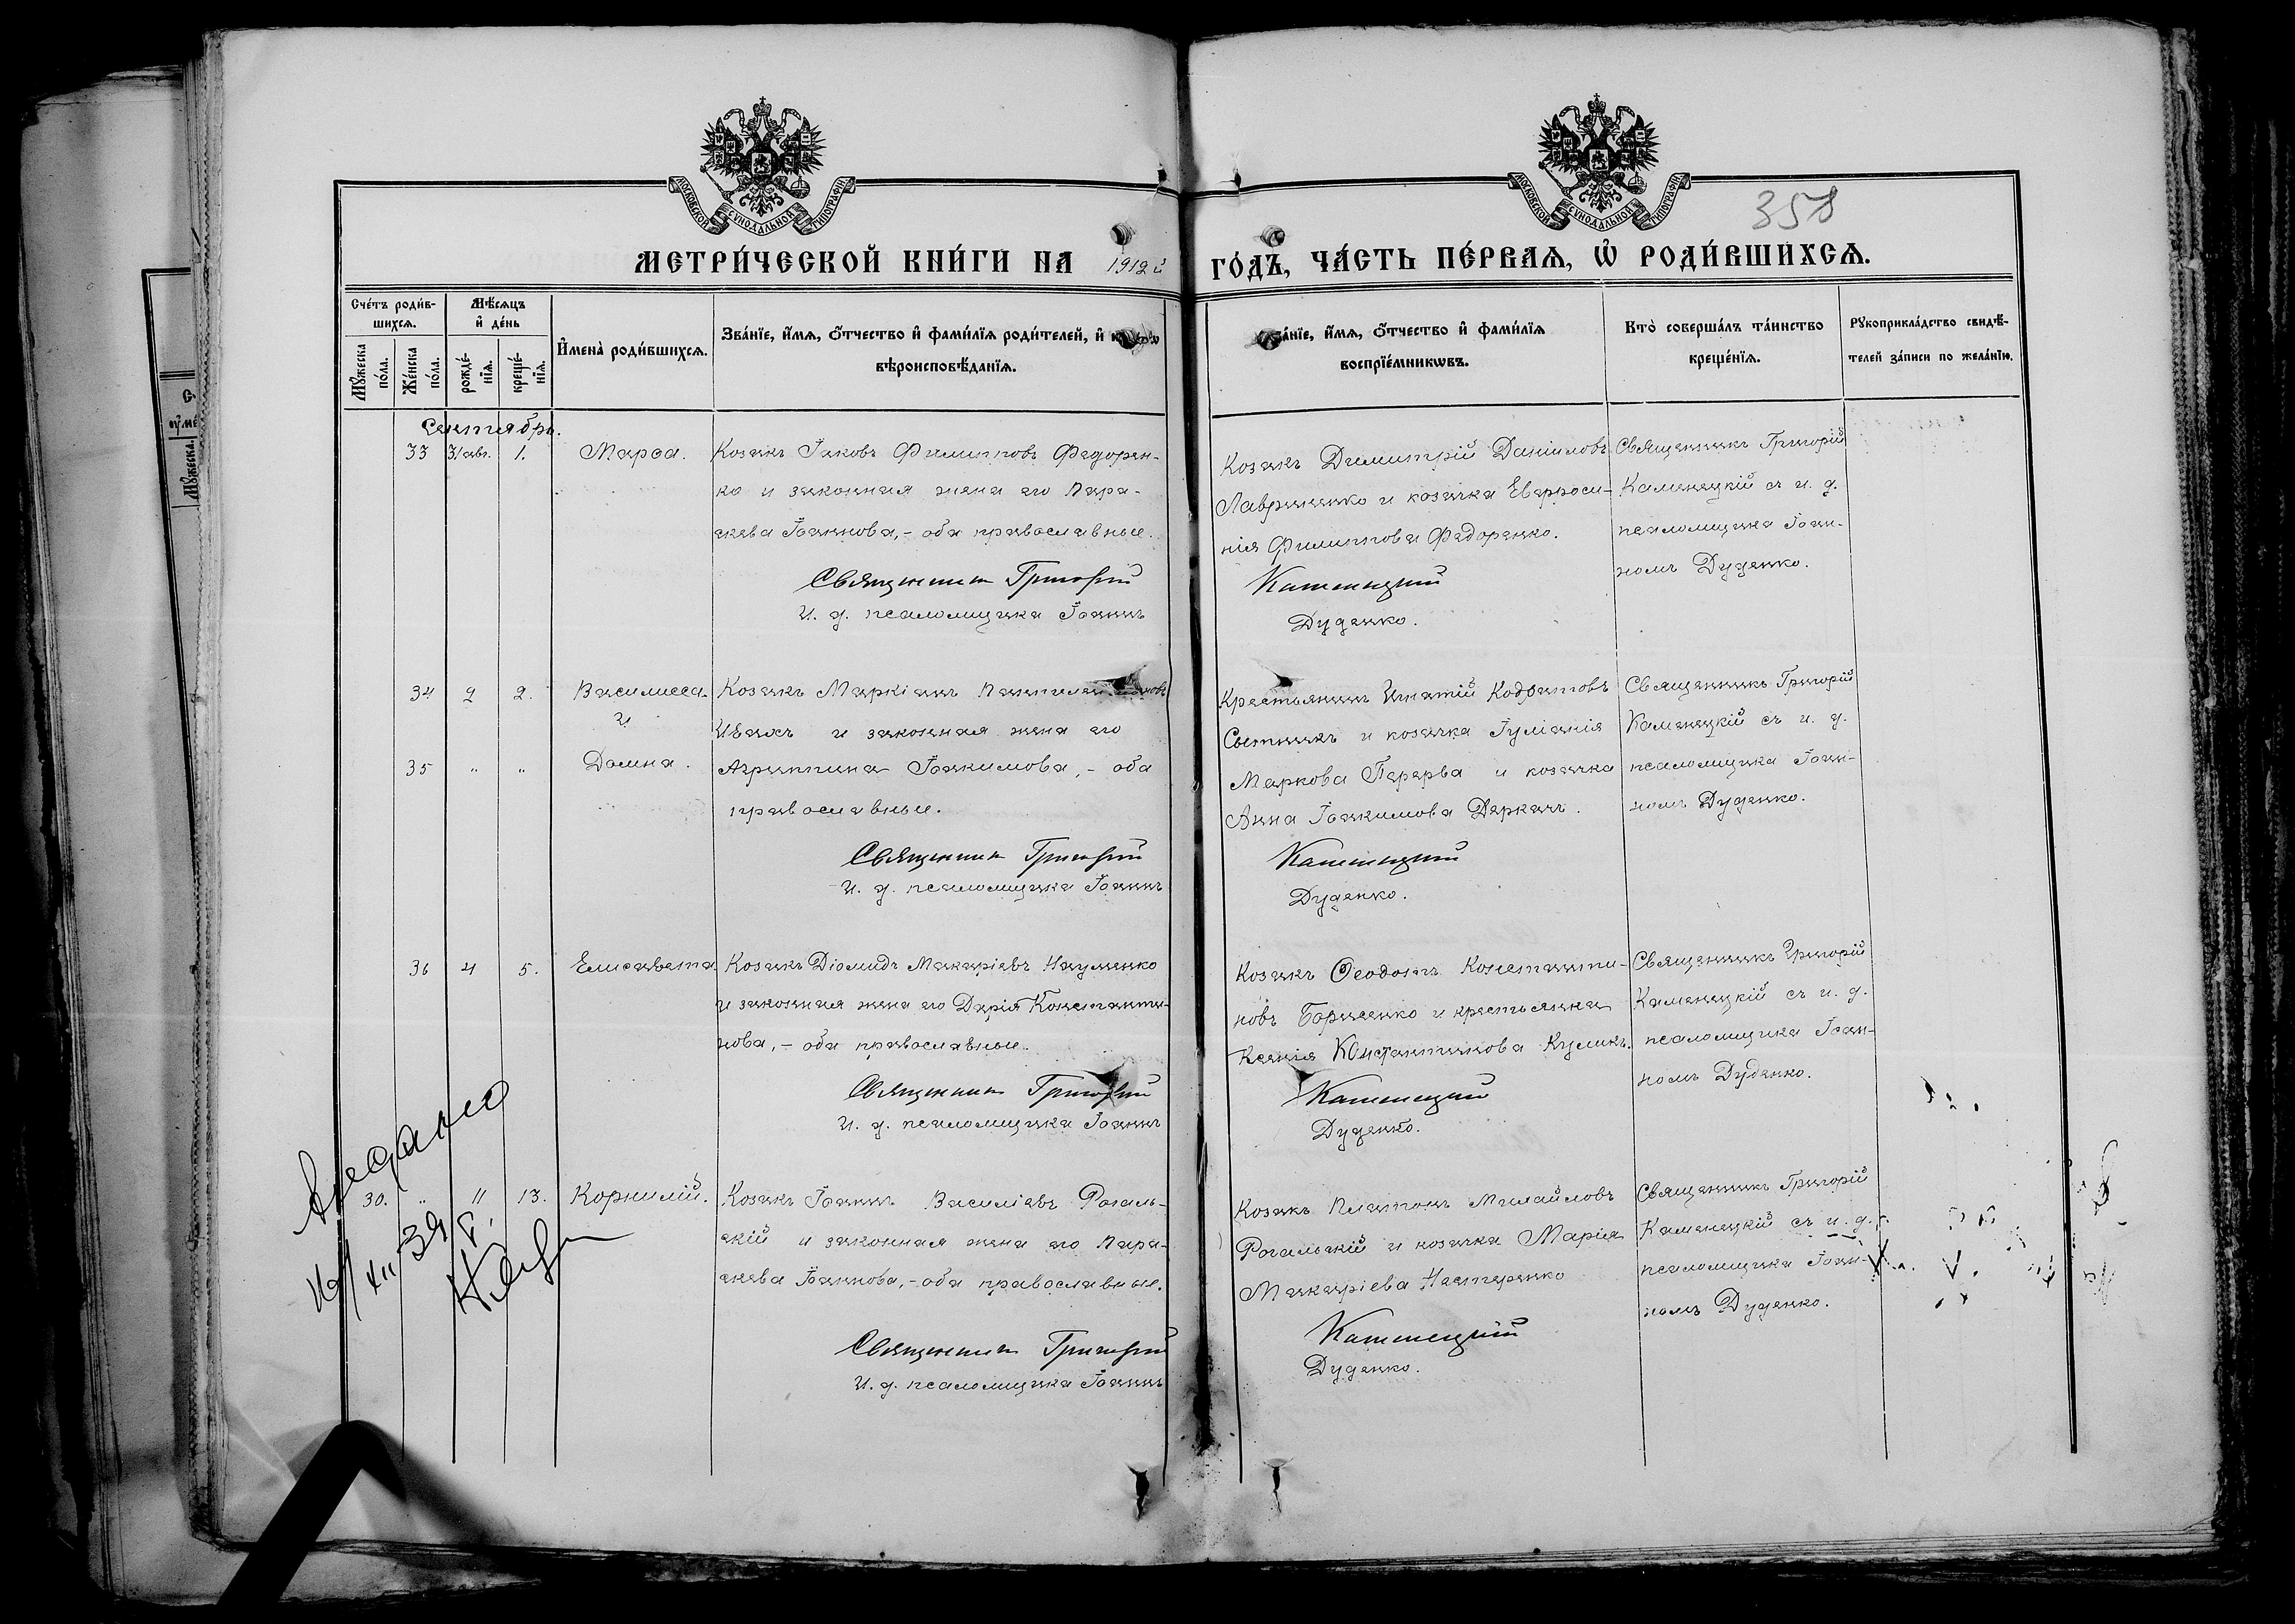 МОСКОВСКОЙ СѴНОДАЛЬНОЙ ТИПОГРАФІИ
МОСКОВСКОЙ СѴНОДАЛЬНОЙ ТИПОГРАФІИ
358
МЕТРИ́ЧЕСКОЙ КНИ́ГИ НА 1912 й ГО́ДЪ, ЧА́СТЬ ПЕ́РВАѦ, Ѡ҆ РОДИ́ВШИХСѦ.
Сче́тъ роди́в-
шихсѧ.
Мꙋ́жеска по́ла.
Же́нска по́ла.
Мѣ́сѧцъ
и҆ де́нь
рожде́-
нїѧ.
креще́-
нїѧ.
И҆мена̀ роди́вшихсѧ.
Зва́нїе, и҆́мѧ, ѻ҆́тчество и҆ фами́лїѧ роди́телей, и҆
вѣроисповѣ́данїѧ.
Зва́нїе, и҆́мѧ, ѻ҆́тчество и҆ фами́лїѧ
воспрїе́мникѡвъ.
Кто̀ соверша́лъ та́инство
креще́нїѧ.
Рꙋкоприкла́дство свидѣ́-
телей за́писи по жела́нїю.
Сентябрь.
33 31 авг. 1. Марѳа. Козакъ Іаковъ Филипповъ Федорен-
ко и законная жена его Пара-
скева Іоаннова,- оба православные.
Священник Григорий
И. д. псаломщика Іоаннъ
Козакъ Димитрій Даніиловъ
Лавриненко и козачка Евфроси-
нія Филиппова Федоренко.
Каменецкий
Дуденко.
Священникъ Григорій
Каменецкій съ и. д.
псаломщика Іоан-
номъ Дуденко.
34 2 2. Василисса.
и
35 " " Домна.
Козакъ Маркіанъ
Ивахъ и законная жена его
Агриппина Іоакимова,- оба
православные.
Священник Григорий
И. д. псаломщика Іоаннъ
Крестьянинъ Игнатій Кодратовъ
Сытникъ и козачка Іуліанія
Маркова Перерва и козачка
Анна Іоакимова Деркачъ.
Каменецкий
Дуденко.
Священникъ Григорій
Каменецкій съ и. д.
псаломщика Іоан-
номъ Дуденко.
36 4 5. Елисавета. Козакъ Діомидъ Макаріевъ Науменко
и законная жена его Дарія Константи-
нова,- оба православные.
Священник Григорий
И. д. псаломщика Іоаннъ
Козакъ Ѳеодотъ Константи-
новъ Борисенко и крестьянка
Ксенія Константинова Куликъ.
Каменецкий
Дуденко.
Священникъ Григорій
Каменецкій съ и. д.
псаломщика Іоан-
номъ Дуденко.
30. " 11 13. Корнилій. Козакъ Іоаннъ Василіевъ Рогаль-
скій и законная жена его Пара-
скева Іоаннова,- оба православные.
Священник Григорий
И. д. псаломщика Іоаннъ
Козакъ Платонъ Михайловъ
Рогальскій и козачка Марія
Макаріева Нестеренко
Каменецкий
Дуденко.
Священникъ Григорій
Каменецкій съ и. д.
псаломщика Іоан-
номъ Дуденко.